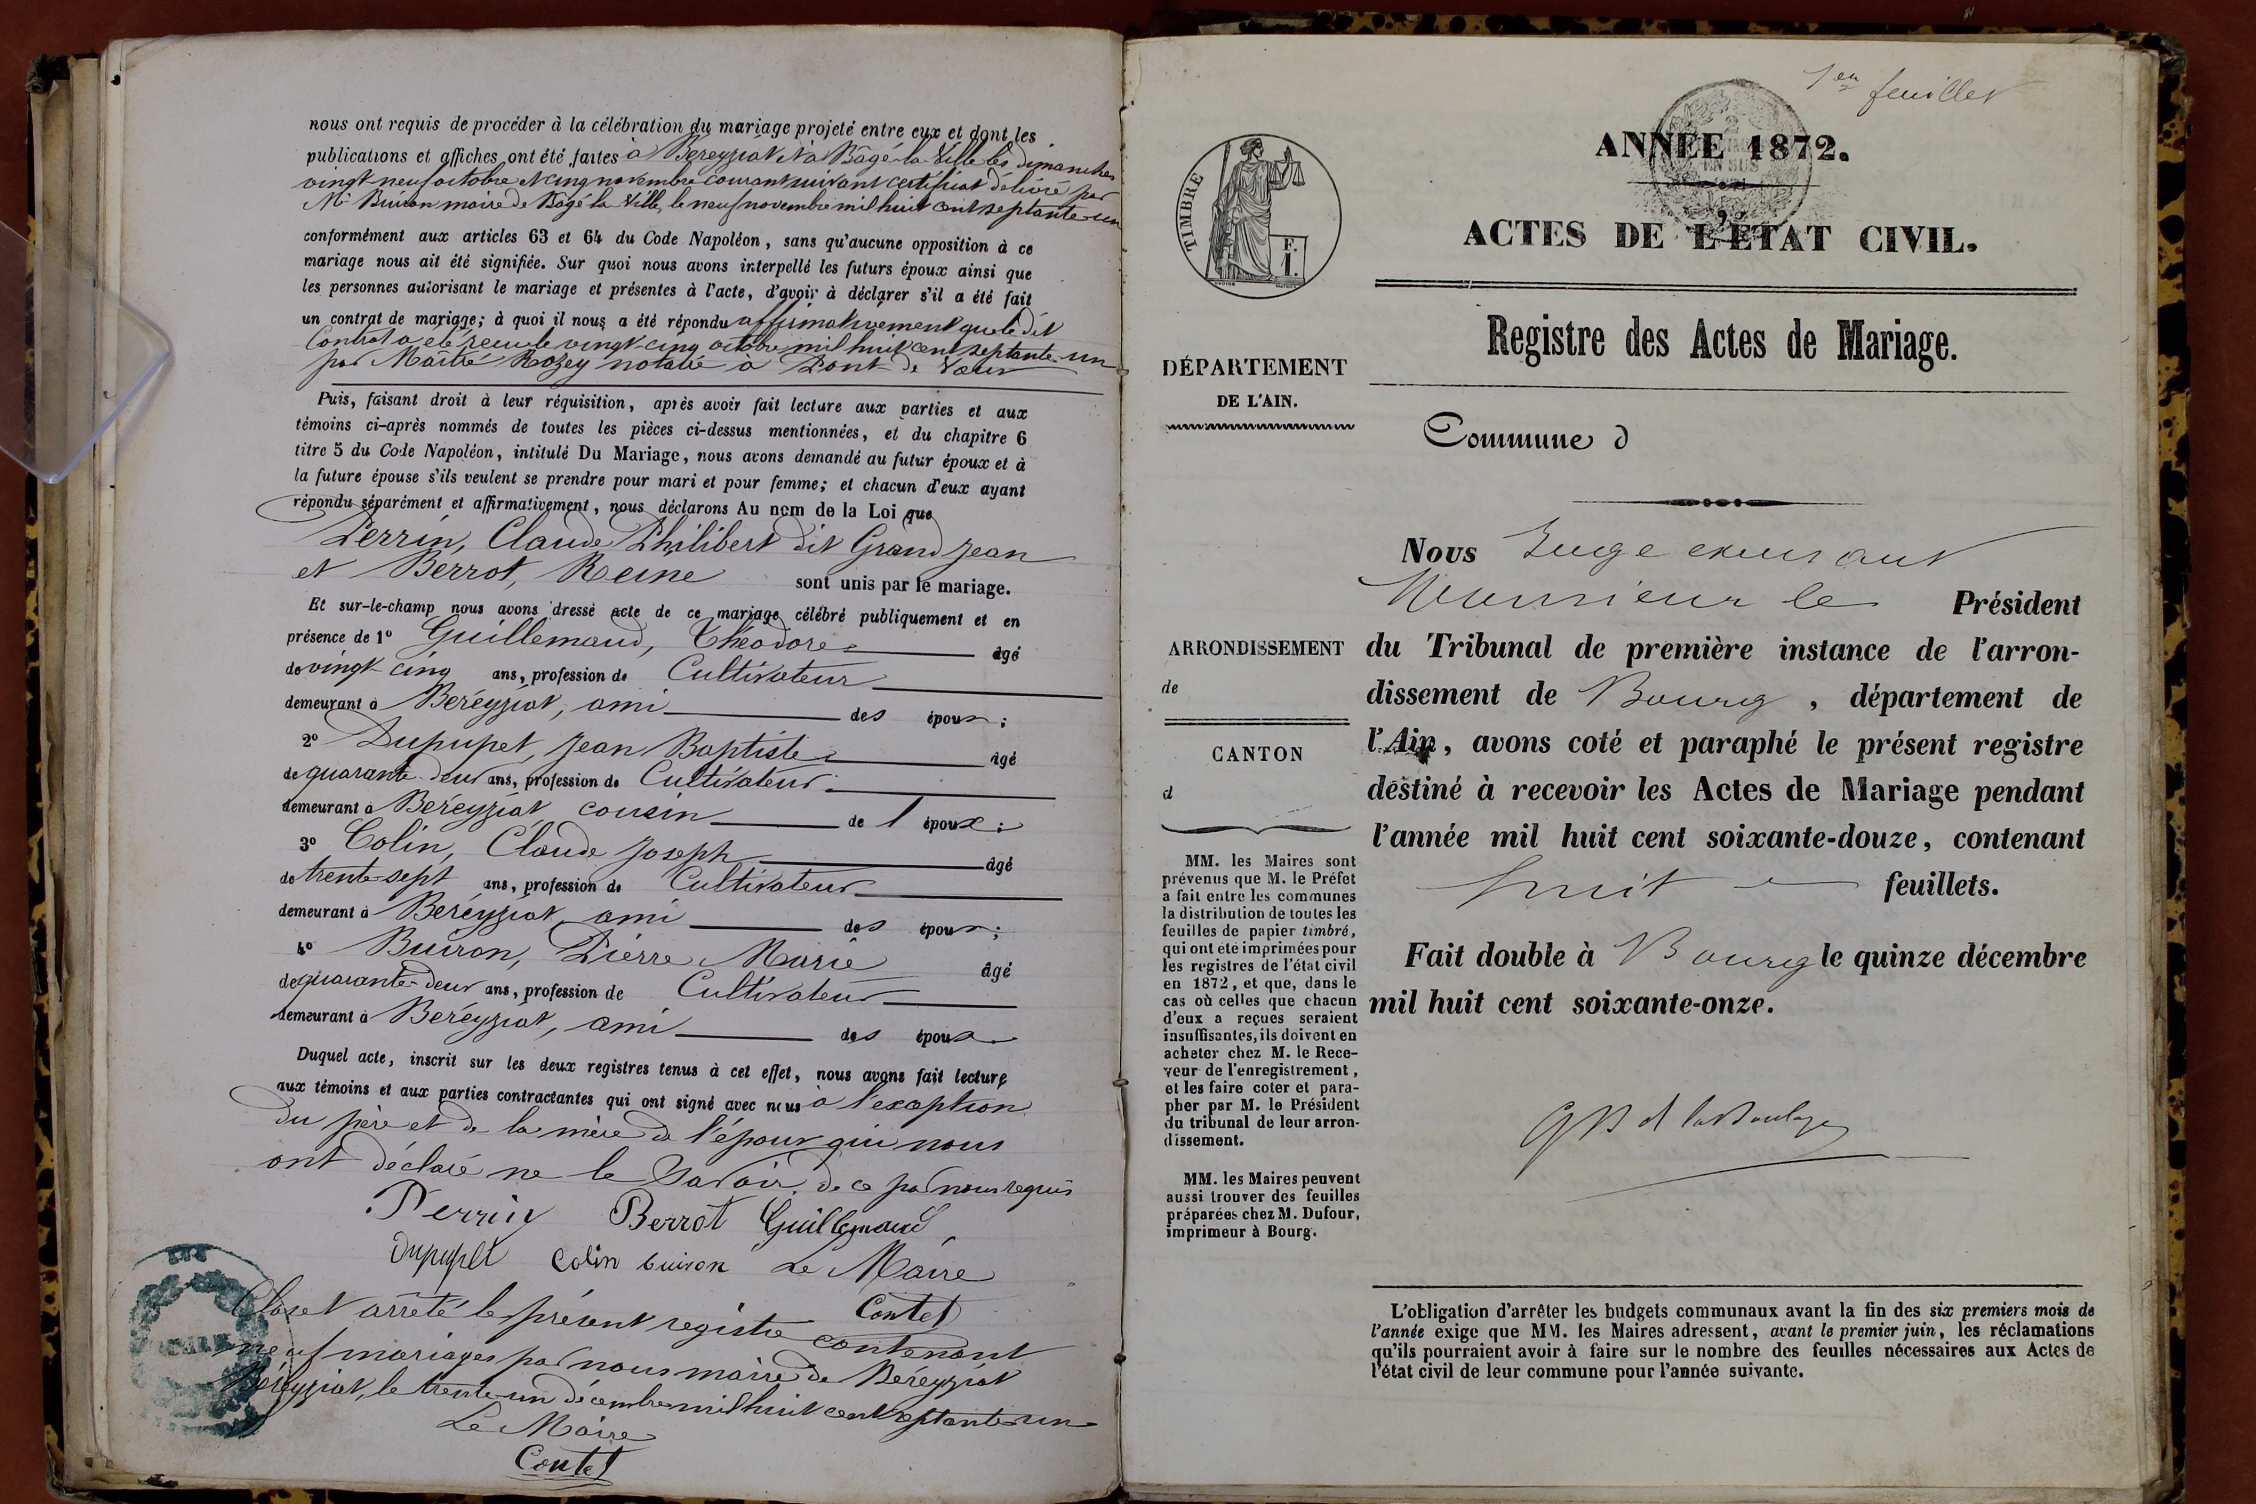 nous ont requis de procéder à la célébration du mariage projeté entre eux et dont les
publications et affiches ont été faites à Béreyziat et à Bâgé-la-Ville les dimanches
vingt neuf octobre et cinq novembre courant suivant certificat délivré par
Mr Buiron maire de Bâgé la Ville, le neuf novembre mil huit cent septante-un
conformément aux articles 63 et 64 du Code Napoléon, sans qu'aucune opposition à ce
mariage nous ait été signifiée. Sur quoi nous avons interpellé les futurs époux ainsi que
les personnes autorisant le mariage et présentes à l'acte, d'avoir à déclarer s'il a été fait
un contrat de mariage; à quoi il nous a été répondu affirmativement que le dit
Contrat a été recu le vingt-cinq octobre mil huit cent septante-un
par Maître Rozey notaire à Pont de Vaux
Puis, faisant droit à leur réquisition, après avoir fait lecture aux parties et aux
témoins ci-après nommés de toutes les pièces ci-dessus mentionnées, et du chapitre 6
titre 5 du Code Napoléon, intitulé Du Mariage, nous avons demandé au futur époux et à
la future épouse s'ils veulent se prendre pour mari et pour femme; et chacun d'eux ayant
répondu séparément et affirmativement, nous déclarons Au nom de la Loi que
Perrin, Claude Philibert dit Grand Jean
et Berrot, Reine sont unis par le mariage.
Et sur-le-champ nous avons dressé acte de ce mariage célébré publiquement et en
présence de 1º Guillemaud, Théodore âgé
de vingt-cinq ans, profession de Cultivateur
demeurant à Béréyziat, ami des époux;
2º Dupupet, Jean Baptiste âgé
de quarante-deux ans, profession de Cultivateur
demeurant à Béréyziat, cousin de l'époux;
3º Colin, Claude Joseph âgé
de trente-sept ans, profession de Cultivateur
demeurant à Béréyziat, ami des époux;
4º Buiron, Pierre Marie âgé
de quarante-deux ans, profession de Cultivateur
demeurant à Béréyziat, ami des époux
Duquel acte, inscrit sur les deux registres tenus à cet effet, nous avons fait lecture
aux témoins et aux parties contractantes qui ont signé avec nous à l'exception
du père et de la mère de l'époux qui nous
ont déclaré ne le savoir, de ce par nous requis
Perrin Berrot Guillemaud
Dupupet Colin buiron Le Maire
Contet
Clos et arrêté le présent registre contenant
neuf mariages par nous maire de Béréyziat
Béréyziat, le trente-un décembre mil huit cent septante-un
Le Maire
Contet
1er feuillet
ANNÉE 1872.
ACTES DE L'ÉTAT CIVIL.
TIMBRE
F.
1.
Registre des Actes de Mariage.
DÉPARTEMENT
DE L'AIN.
Commune d
ARRONDISSEMENT
de
CANTON
d
MM. les Maires sont
prévenus que M. le Préfet
a fait entre les communes
la distribution de toutes les
feuilles de papier timbré,
qui ont été imprimées pour
les registres de l'état civil
en 1872, et que, dans le
cas où celles que chacun
d'eux a reçues seraient
insuffisantes, ils doivent en
acheter chez M. le Rece-
veur de l'enregistrement,
et les faire coter et para-
pher par M. le Président
du tribunal de leur arron-
dissement.
MM. les Maires peuvent
aussi trouver des feuilles
préparées chez M. Dufour,
imprimeur à Bourg.
Nous Juge exerçant
Monsieur le Président
du Tribunal de première instance de l'arron-
dissement de Bourg, département de
l'Ain, avons coté et paraphé le présent registre
destiné à recevoir les Actes de Mariage pendant
l'année mil huit cent soixante-douze, contenant
huit feuillets.
Fait double à Bourg le quinze décembre
mil huit cent soixante-onze.
L'obligation d'arrêter les budgets communaux avant la fin des six premiers mois de
l'année exige que MM. les Maires adressent, avant le premier juin, les réclamations
qu'ils pourraient avoir à faire sur le nombre des feuilles nécessaires aux Actes de
l'état civil de leur commune pour l'année suivante.